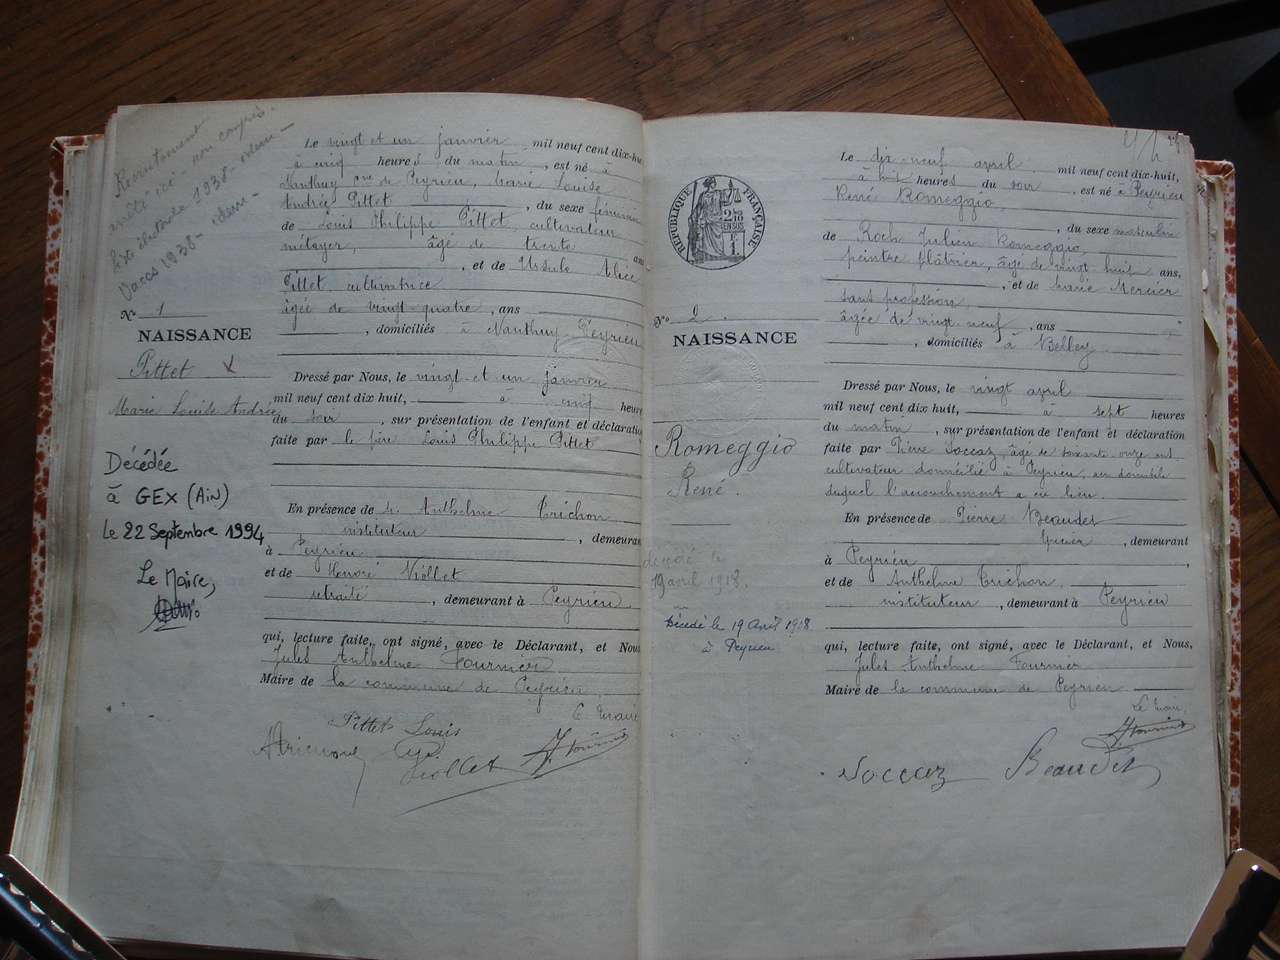 Recrutement
arrêté ici non compris.
Liste électorale 1938 - idem -
Vaccos 1938 - idem -
N° 1
NAISSANCE
Pittet X
Marie Louise Andrée
Décédée
à GEX (Ain)
le 22 Septembre 1994
Le Maire,
Le vingt et un janvier, mil neuf cent dix-huit
à cinq heures du matin, est né à
Nanthuy cne de Peyrieu, Marie Louise
Andrée Pittet, du sexe féminin
de Louis Philippe Pittet, cultivateur
métayer, âgé de trente ans
, et de Ursule Alice
Pittet, cultivatrice
âgée de vingt-quatre, ans
, domiciliés à Nanthuy-Peyrieu
Dressé par Nous, le vingt-et un janvier
mil neuf cent dix huit, à cinq heures
du soir, sur présentation de l'enfant et déclaration
faite par le père Louis Philippe Pittet
En présence de Anthelme Trichon
instituteur, demeurant
à Peyrieu
et de Honoré Viollet
retraité, demeurant à Peyrieu
qui, lecture faite, ont signé, avec le Déclarant, et Nous
Jules Anthelme Fournier
Maire de la commune de Peyrieu,
Le Maire
Pittet Louis
ATrichon
Viollet
JFournier
24
RÉPUBLIQUE FRANÇAISE
2/10 EN SUS
N° 2.
NAISSANCE
Romeggio
René.
décédé le
19 avril 1918.
Décédé le 19 Avril 1918
à Peyrieu
Le dix-neuf avril mil neuf cent dix-huit,
à huit heures du soir, est né à Peyrieu
René Romeggio
, du sexe masculin
de Roch Julien Romeggio
peintre plâtrier, âgé de vingt huit ans,
, et de Marie Mercier
sans profession,
âgée de vingt-neuf, ans
, domiciliés à Belley
Dressé par Nous, le vingt avril
mil neuf cent dix huit, à sept heures
du matin, sur présentation de l'enfant et déclaration
faite par Pierre Soccaz, âgé de soixante-onze ans
cultivateur domicilié à Peyrieu, au domicile
duquel l'accouchement a eu lieu.
En présence de Pierre Beaudet
épicier, demeurant
à Peyrieu
et de Anthelme Trichon,
instituteur, demeurant à Peyrieu
qui, lecture faite, ont signé, avec le Déclarant, et Nous,
Jules Anthelme Fournier
Maire de la commune de Peyrieu
Le Maire,
JFournier
Soccaz Beaudet